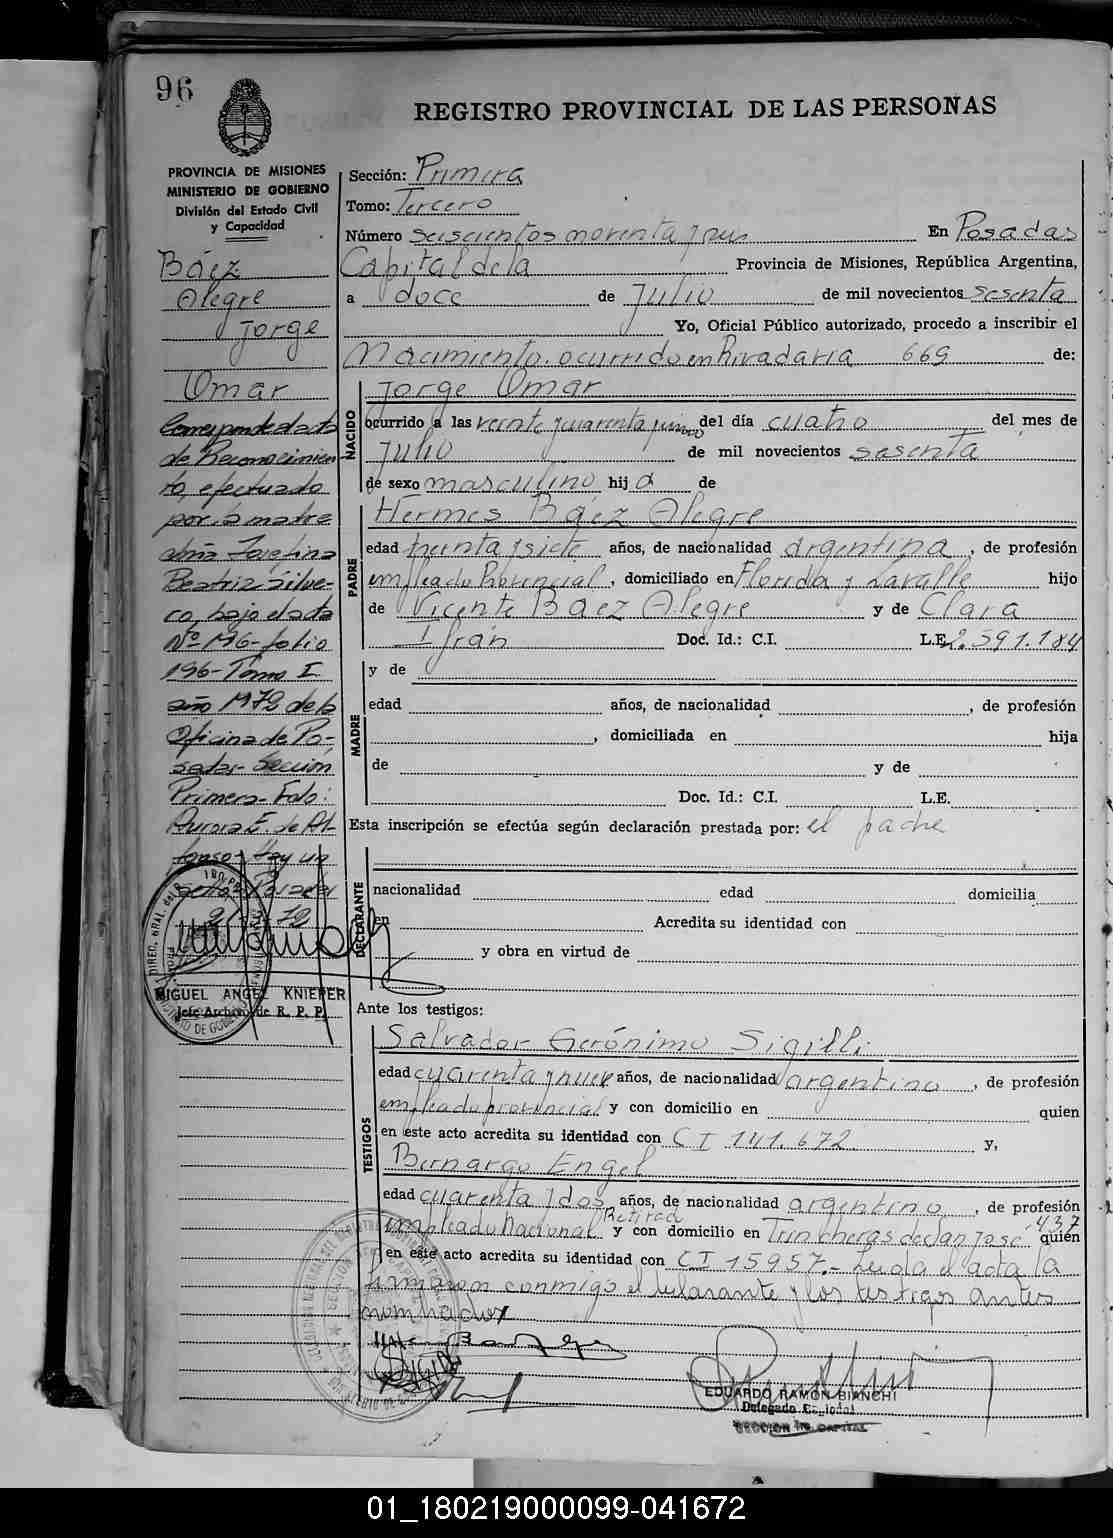 96
REGISTRO PROVINCIAL DE LAS PERSONAS
PROVINCIA DE MISIONES
MINISTERIO DE GOBIERNO
División del Estado Civil
y Capacidad
Báez
Alegre
Jorge
Omar
Corresponde el acta
de Reconocimien
to, efectuado
por la madre
doña Josefina
Beatriz Silve-
co, bajo el acta
Nº 196- folio
196- Tomo I
año 1972 de la
Oficina de Po-
sadas- Sección
Primera- Fdo:
Aurora E. de Al-
fonso- Hay un
sello- Posadas
MIGUEL ANGEL KNIEPER
Jefe Archivo de R. P. P.
Sección: Primera
Tomo: Tercero
Número seiscientos noventa y seis En Posadas
Capital de la Provincia de Misiones, República Argentina,
a doce de Julio de mil novecientos sesenta
Yo, Oficial Público autorizado, procedo a inscribir el
Nacimiento ocurrido en Rivadavia 669 de:
NACIDO
Jorge Omar
ocurrido a las veinte y cuarenta y cinco del día cuatro del mes de
Julio de mil novecientos sesenta
de sexo masculino hijo de
PADRE
Hermes Báez Alegre
edad treinta y siete años, de nacionalidad argentina, de profesión
empleado Provincial, domiciliado en Florida y Lavalle hijo
de Vicente Báez Alegre y de Clara
Ifrán Doc. Id.: C.I. L.E. 2.591.184
MADRE
y de
edad años, de nacionalidad , de profesión
, domiciliada en hija
de y de
Doc. Id.: C.I. L.E.
Esta inscripción se efectúa según declaración prestada por: el padre
DECLARANTE
nacionalidad edad domicilia
en Acredita su identidad con
y obra en virtud de
Ante los testigos:
TESTIGOS
Salvador Gerónimo Sigilli
edad cuarenta y nueve años, de nacionalidad argentino, de profesión
empleado provincial y con domicilio en quien
en este acto acredita su identidad con CI 141.672 y,
Bernardo Engel
edad cuarenta y dos años, de nacionalidad argentino, de profesión
empleado Nacional Retirado y con domicilio en Trincheras de San José 437 quién
en este acto acredita su identidad con CI 15957.- Leída el acta la
firmaron conmigo el declarante y los testigos antes
nombrados
EDUARDO RAMÓN BIANCHI
Delegado Seccional
SECCION 1ra. CAPITAL
01_180219000099-041672